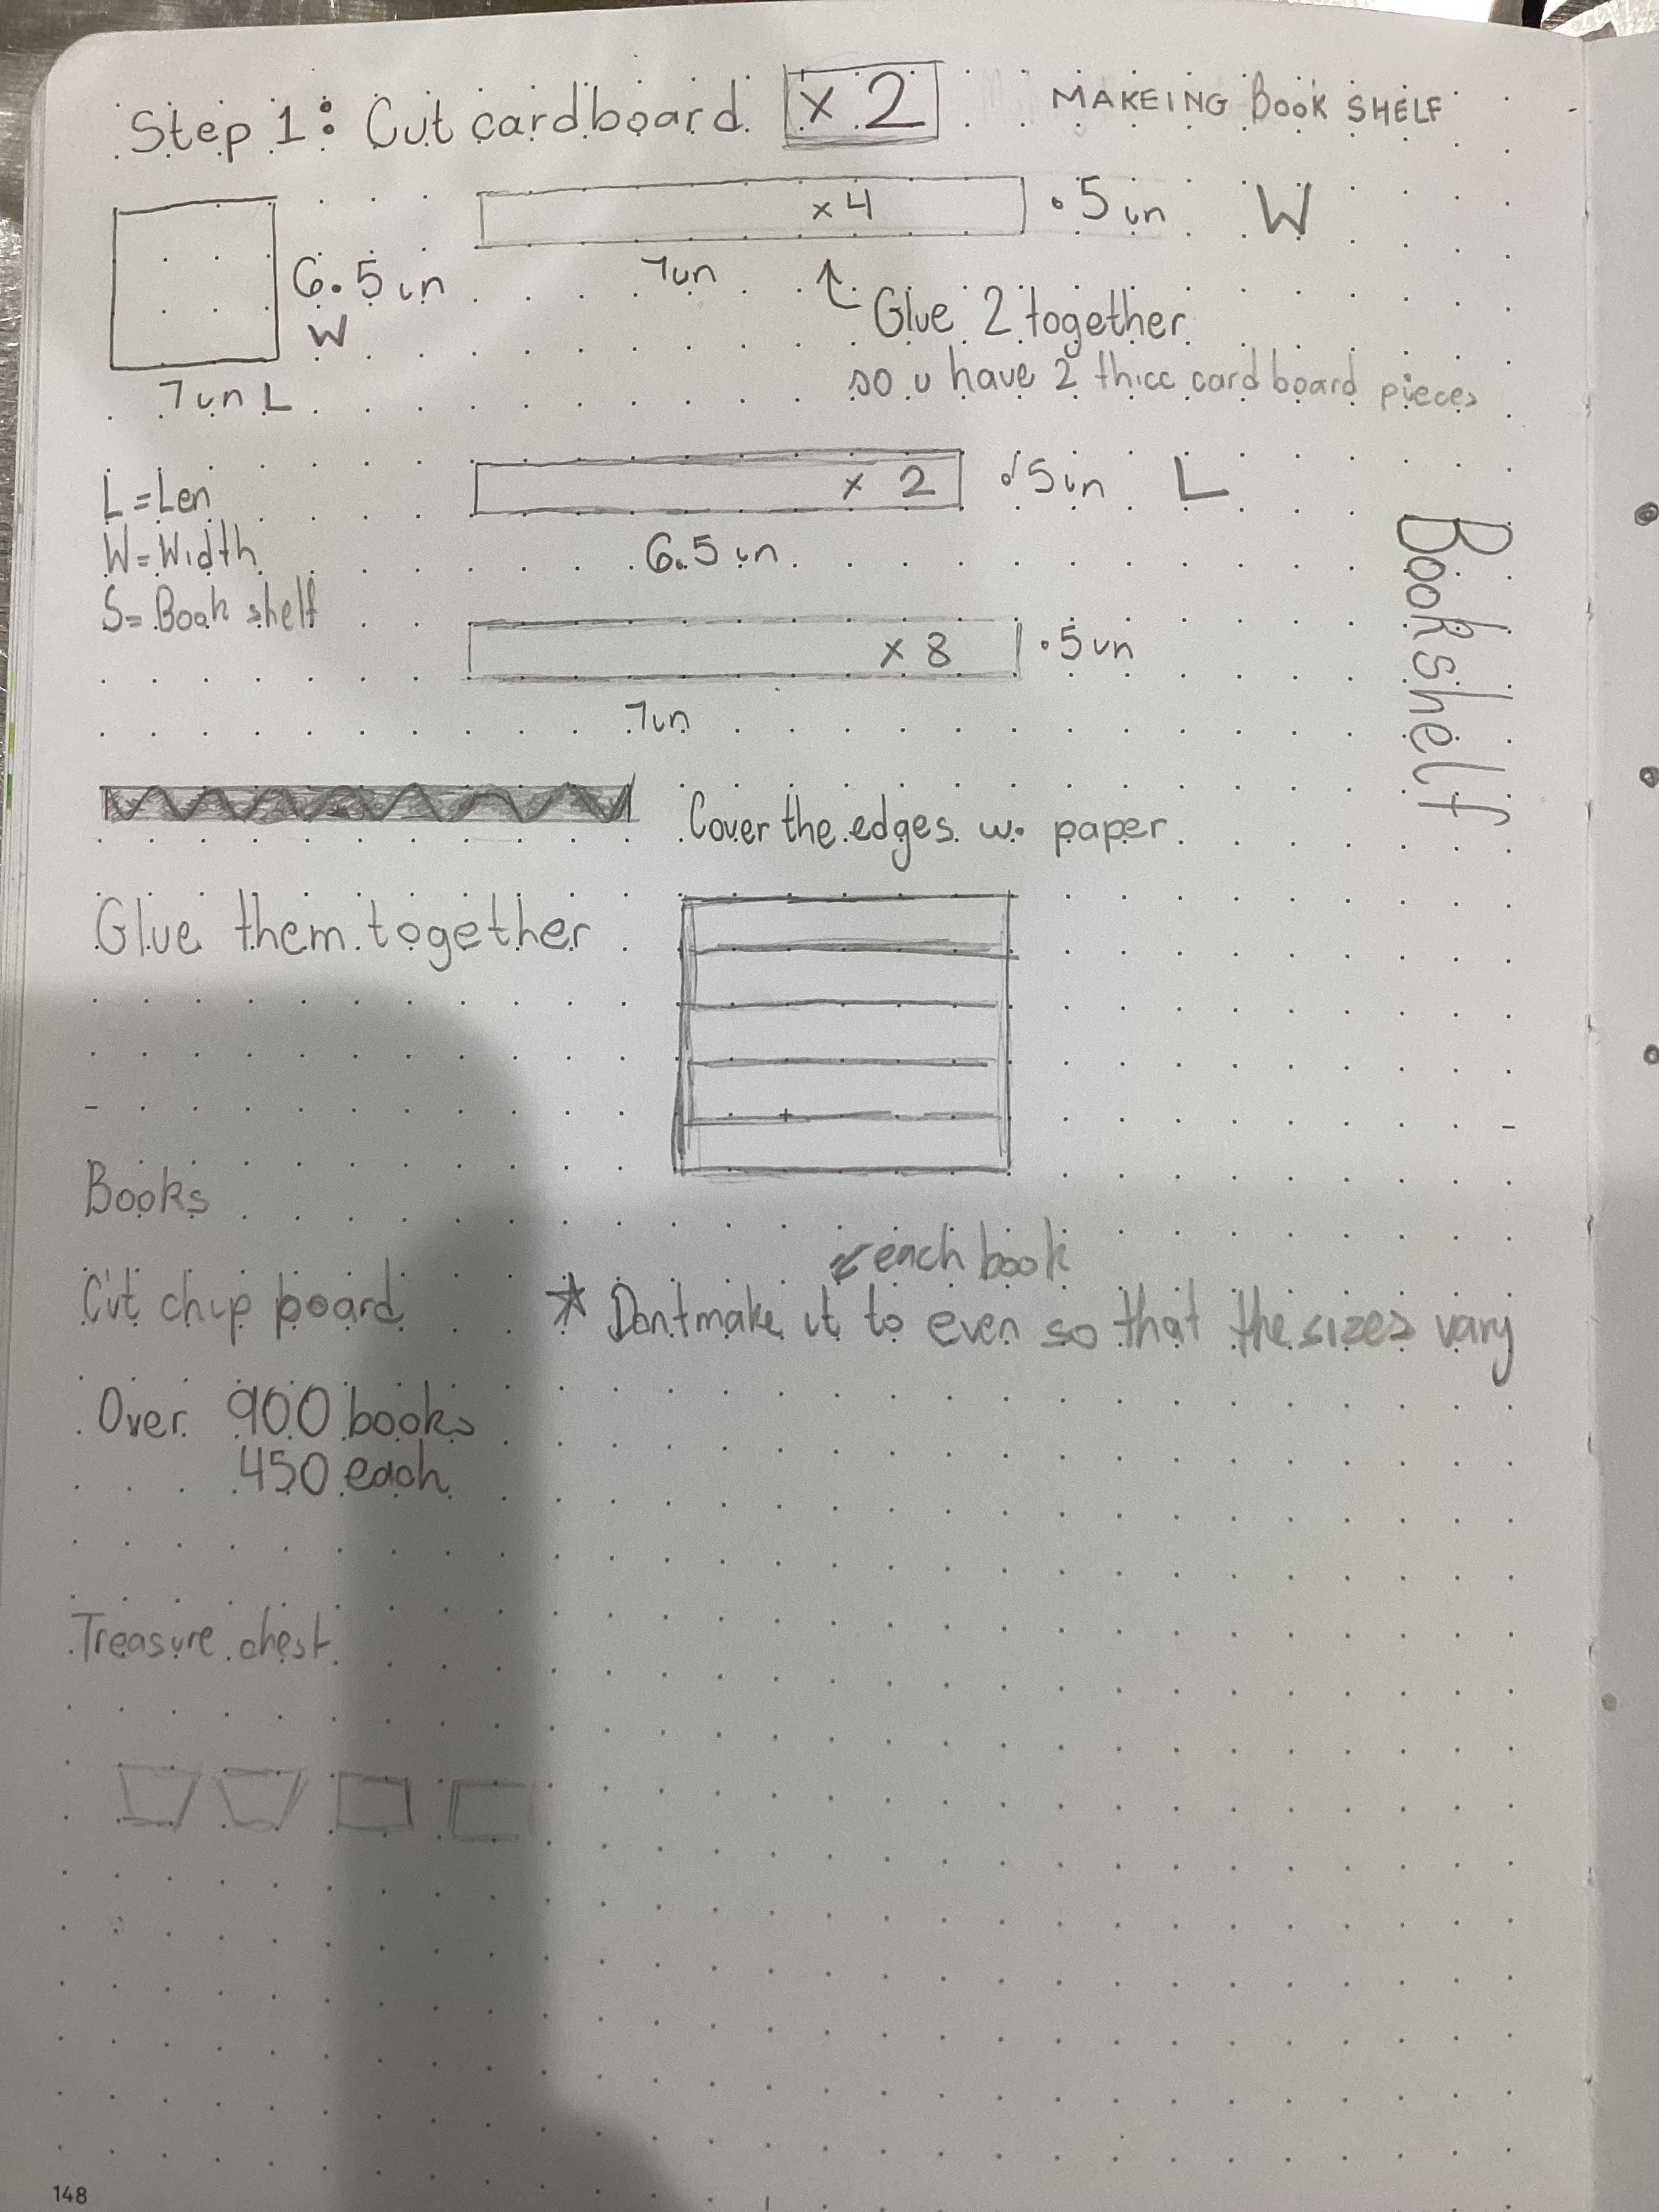 Step 1: Cut cardboard x 2
MAKEING Book SHELF
x4
.5 in W
6.5 in
W
7in
Glue 2 together
so u have 2 thicc cardboard pieces
7in L
x 2
.5in L
6.5 in
L = Len
W = Width
S = Book shelf
x 8
.5in
7in
Bookshelf
Cover the edges w. paper
Glue them together
Books
each book
Cut chip board
* Dont make it to even so that the sizes vary
Over 900 books
450 each
Treasure chest
148